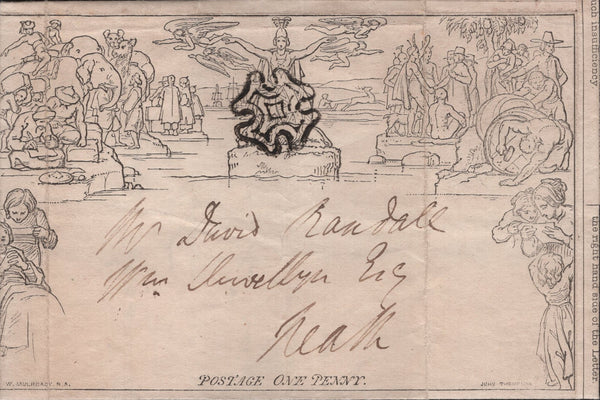 Mr David Randall
Wm Llewellyn Esq
Neath
POSTAGE ONE PENNY.
W. MULREADY, R.A.
JOHN THOMPSON
insufficiency
the right hand side of the Letter.